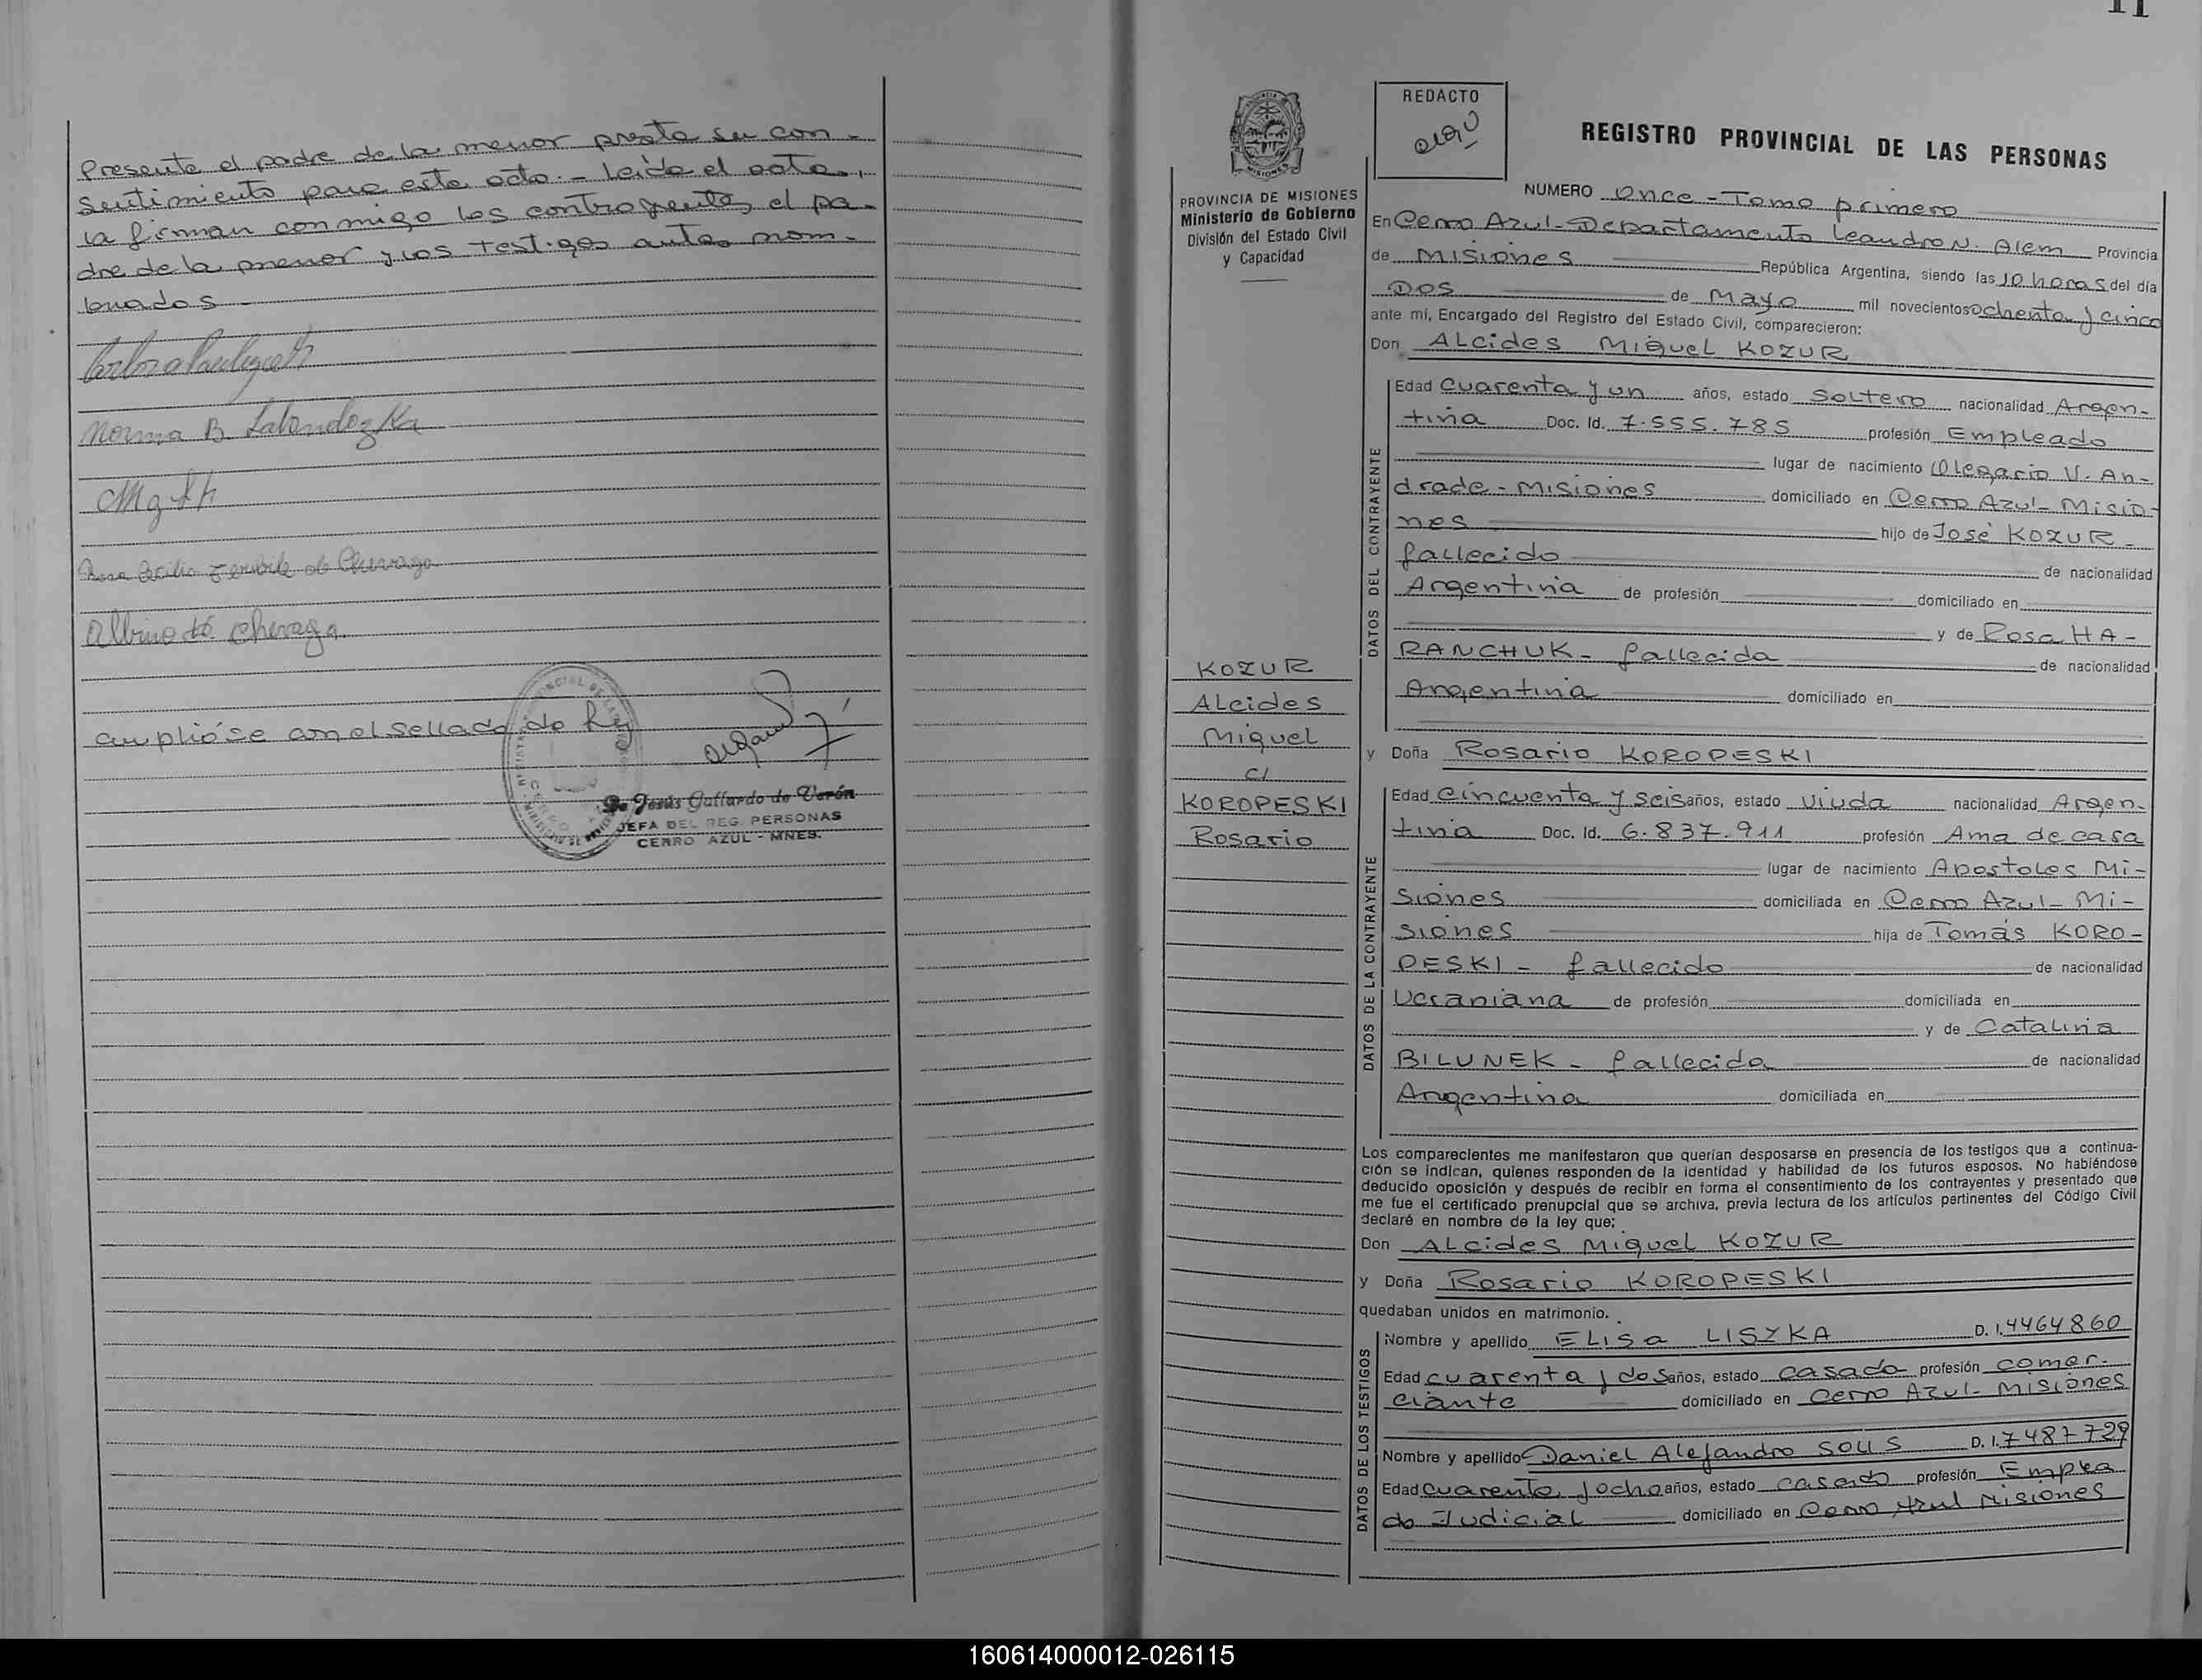 Presente el padre de la menor presta su con-
sentimiento para este acto.- Leída el acta,
la firman conmigo los contrayentes, el pa-
dre de la menor y los testigos antes nom-
brados
Norma B.
Albino
ampliose con el sellado de ley
de Jesús Gallardo de Verón
JEFA DEL REG. PERSONAS
CERRO AZUL - MNES.
11
REDACTO
REGISTRO PROVINCIAL DE LAS PERSONAS
MISIONES
PROVINCIA DE MISIONES
Ministerio de Gobierno
División del Estado Civil
y Capacidad
KOZUR
Alcides
Miguel
c/
KOROPESKI
Rosario
NUMERO once - Tomo primero
En Cerro Azul - Departamento Leandro N. Alem Provincia
de Misiones República Argentina, siendo las 10 horas del día
Dos de Mayo mil novecientos ochenta y cinco
ante mí, Encargado del Registro del Estado Civil, comparecieron:
Don Alcides Miguel KOZUR
DATOS DEL CONTRAYENTE
Edad Cuarenta y un años, estado Soltero nacionalidad Argen-
tina Doc. Id. 7.555.785 profesión Empleado
lugar de nacimiento Olegario V. An-
drade - Misiones domiciliado en Cerro Azul - Misio-
nes hijo de José KOZUR -
fallecido de nacionalidad
Argentina de profesión domiciliado en
y de Rosa HA-
RANCHUK - fallecida de nacionalidad
Argentina domiciliado en
y Doña Rosario KOROPESKI
DATOS DE LA CONTRAYENTE
Edad Cincuenta y seis años, estado Viuda nacionalidad Argen-
tina Doc. Id. 6.837.911 profesión Ama de casa
lugar de nacimiento Apostoles Mi-
siones domiciliada en Cerro Azul - Mi-
siones hija de Tomás KORO-
PESKI - fallecido de nacionalidad
Ucraniana de profesión domiciliada en
y de Catalina
BILUNEK - fallecida de nacionalidad
Argentina domiciliada en
Los comparecientes me manifestaron que querían desposarse en presencia de los testigos que a continua-
ción se indican, quienes responden de la identidad y habilidad de los futuros esposos. No habiéndose
deducido oposición y después de recibir en forma el consentimiento de los contrayentes y presentado que
me fue el certificado prenupcial que se archiva, previa lectura de los artículos pertinentes del Código Civil
declaré en nombre de la ley que;
Don Alcides Miguel KOZUR
y Doña Rosario KOROPESKI
quedaban unidos en matrimonio.
DATOS DE LOS TESTIGOS
Nombre y apellido Elisa LISZKA D. I. 4464860
Edad cuarenta y dos años, estado casada profesión comer-
ciante domiciliado en Cerro Azul - Misiones
Nombre y apellido Daniel Alejandro SOLIS D. I. 7487729
Edad cuarenta y ocho años, estado casado profesión Emplea
do Judicial domiciliado en Cerro Azul Misiones
160614000012-026115